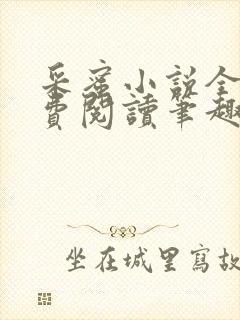 采蜜小说全
費閱讀筆趣
坐在城里寫故